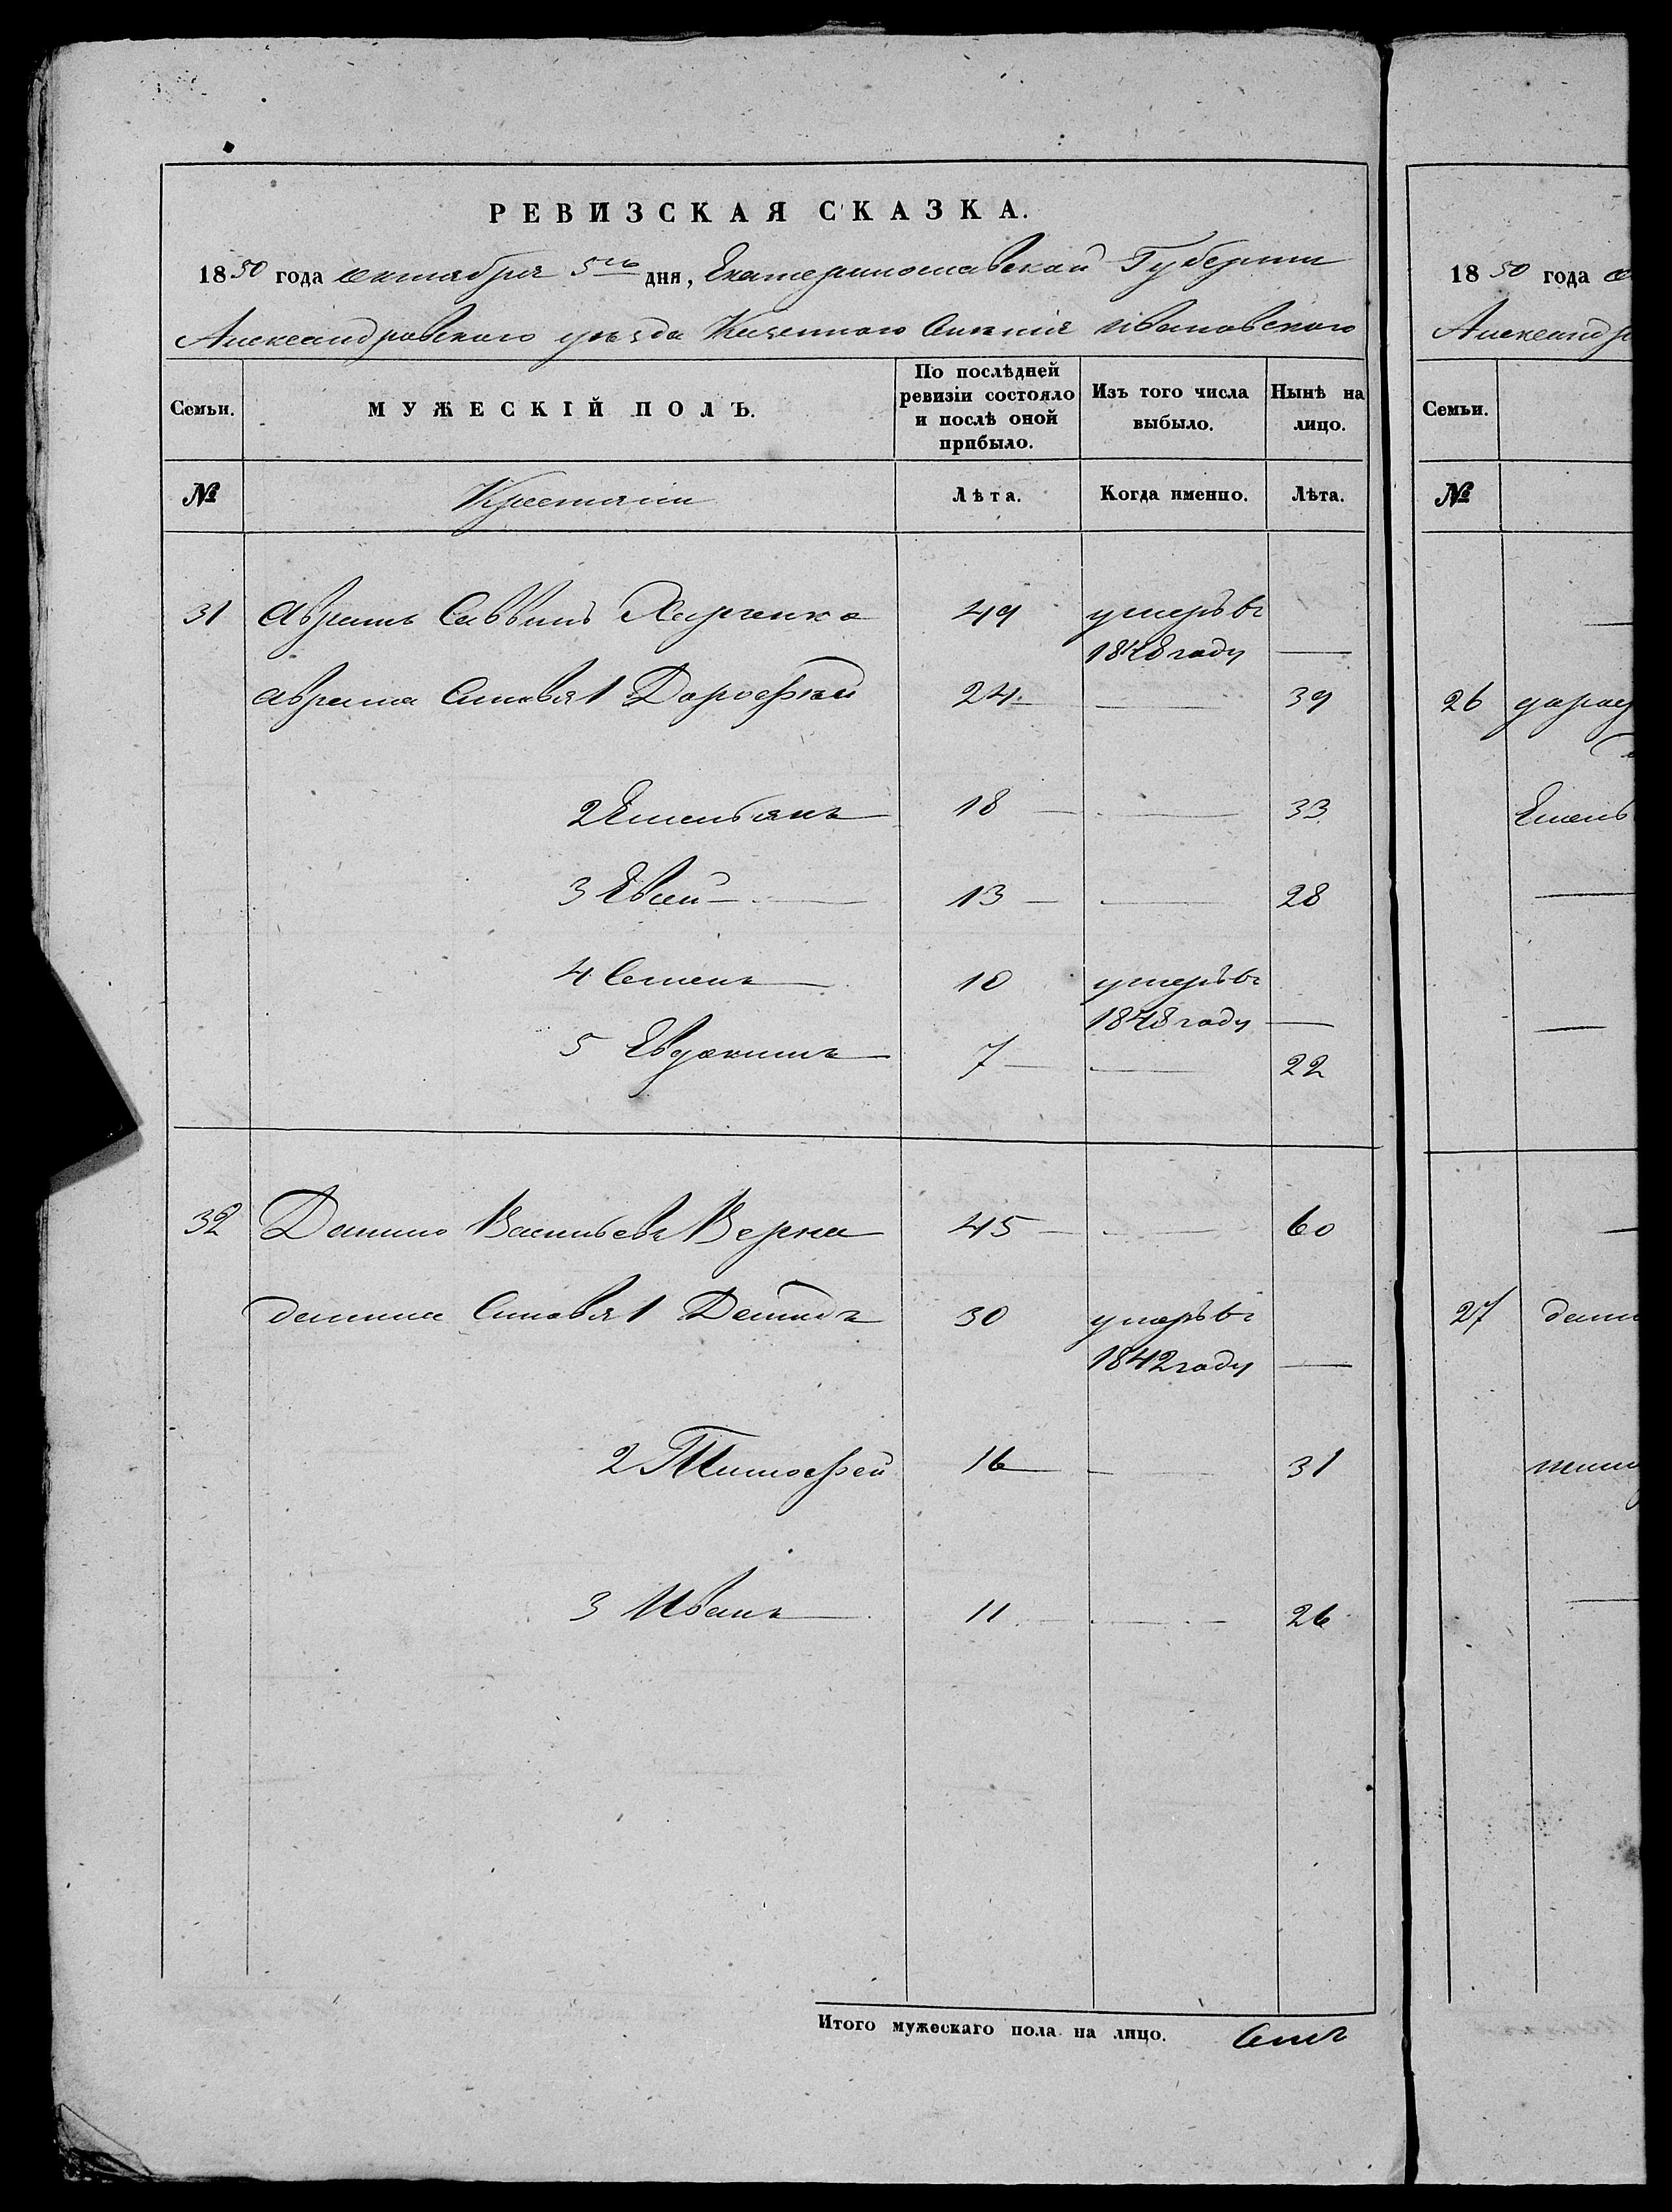 РЕВИЗСКАЯ СКАЗКА.
1850 года октября 5го дня, Екатеринославской Губернии
Александровского уѣзда Казенного Селенія Ивановского
Семьи. МУЖЕСКІЙ ПОЛЪ. По послѣдней ревизіи состояло и послѣ оной прибыло. Изъ того числа выбыло. Нынѣ на лицо.
№ Крестяни Лѣта. Когда именно. Лѣта.
31 Аврамъ Саввинъ Харченко 49 умеръ въ
1848 году —
Аврама Синовья 1 Дорофѣй 24 — 39
2 Емельянъ 18 — 33
3 Евсей 13 — 28
4 Семенъ 10 умеръ въ
1848 году —
5 Евдокимъ 7 — 22
32 Данило Васильевъ Верна 45 — 60
данила Синовья 1 Демидъ 30 умеръ въ
1842 году —
2 Тимофей 16 — 31
3 Иванъ 11 — 26
Итого мужескаго пола на лицо.
18 50 года
Семьи.
№
26
Емель
27